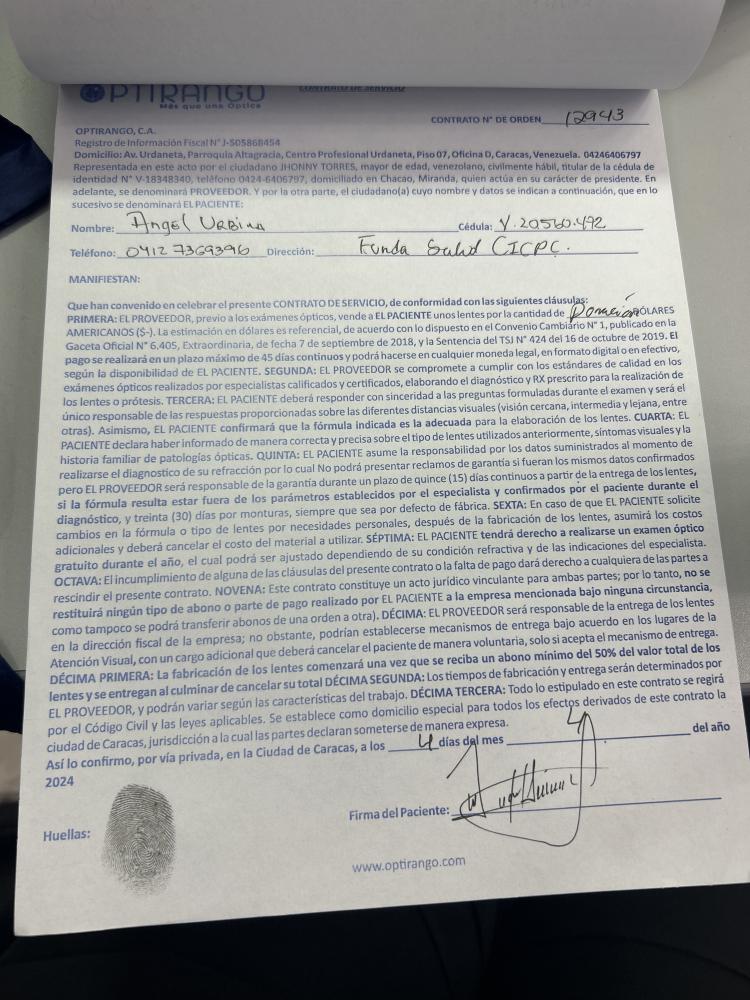 OPTIRANGO
Más que una Óptica
CONTRATO DE SERVICIO
CONTRATO N° DE ORDEN 12943
OPTIRANGO, C.A.
Registro de Información Fiscal N° J-505868454
Domicilio: Av. Urdaneta, Parroquia Altagracia, Centro Profesional Urdaneta, Piso 07, Oficina D, Caracas, Venezuela. 04246406797
Representada en este acto por el ciudadano JHONNY TORRES, mayor de edad, venezolano, civilmente hábil, titular de la cédula de
identidad N° V-18348340, teléfono 0424-6406797, domiciliado en Chacao, Miranda, quien actúa en su carácter de presidente. En
adelante, se denominará PROVEEDOR. Y por la otra parte, el ciudadano(a) cuyo nombre y datos se indican a continuación, que en lo
sucesivo se denominará EL PACIENTE:
Nombre: Angel Urbina Cédula: V.20560.492
Teléfono: 0412 7369396 Dirección: Funda Salud CICPC.
MANIFIESTAN:
Que han convenido en celebrar el presente CONTRATO DE SERVICIO, de conformidad con las siguientes cláusulas:
PRIMERA: EL PROVEEDOR, previo a los exámenes ópticos, vende a EL PACIENTE unos lentes por la cantidad de Donación DÓLARES
AMERICANOS ($-). La estimación en dólares es referencial, de acuerdo con lo dispuesto en el Convenio Cambiario N° 1, publicado en la
Gaceta Oficial N° 6.405, Extraordinaria, de fecha 7 de septiembre de 2018, y la Sentencia del TSJ N° 424 del 16 de octubre de 2019. El
pago se realizará en un plazo máximo de 45 días continuos y podrá hacerse en cualquier moneda legal, en formato digital o en efectivo,
según la disponibilidad de EL PACIENTE. SEGUNDA: EL PROVEEDOR se compromete a cumplir con los estándares de calidad en los
exámenes ópticos realizados por especialistas calificados y certificados, elaborando el diagnóstico y RX prescrito para la realización de
los lentes o prótesis. TERCERA: EL PACIENTE deberá responder con sinceridad a las preguntas formuladas durante el examen y será el
único responsable de las respuestas proporcionadas sobre las diferentes distancias visuales (visión cercana, intermedia y lejana, entre
otras). Asimismo, EL PACIENTE confirmará que la fórmula indicada es la adecuada para la elaboración de los lentes. CUARTA: EL
PACIENTE declara haber informado de manera correcta y precisa sobre el tipo de lentes utilizados anteriormente, síntomas visuales y la
historia familiar de patologías ópticas. QUINTA: EL PACIENTE asume la responsabilidad por los datos suministrados al momento de
realizarse el diagnostico de su refracción por lo cual No podrá presentar reclamos de garantía si fueran los mismos datos confirmados
pero EL PROVEEDOR será responsable de la garantía durante un plazo de quince (15) días continuos a partir de la entrega de los lentes,
si la fórmula resulta estar fuera de los parámetros establecidos por el especialista y confirmados por el paciente durante el
diagnóstico, y treinta (30) días por monturas, siempre que sea por defecto de fábrica. SEXTA: En caso de que EL PACIENTE solicite
cambios en la fórmula o tipo de lentes por necesidades personales, después de la fabricación de los lentes, asumirá los costos
adicionales y deberá cancelar el costo del material a utilizar. SÉPTIMA: EL PACIENTE tendrá derecho a realizarse un examen óptico
gratuito durante el año, el cual podrá ser ajustado dependiendo de su condición refractiva y de las indicaciones del especialista.
OCTAVA: El incumplimiento de alguna de las cláusulas del presente contrato o la falta de pago dará derecho a cualquiera de las partes a
rescindir el presente contrato. NOVENA: Este contrato constituye un acto jurídico vinculante para ambas partes; por lo tanto, no se
restituirá ningún tipo de abono o parte de pago realizado por EL PACIENTE a la empresa mencionada bajo ninguna circunstancia,
como tampoco se podrá transferir abonos de una orden a otra). DÉCIMA: EL PROVEEDOR será responsable de la entrega de los lentes
en la dirección fiscal de la empresa; no obstante, podrían establecerse mecanismos de entrega bajo acuerdo en los lugares de la
Atención Visual, con un cargo adicional que deberá cancelar el paciente de manera voluntaria, solo si acepta el mecanismo de entrega.
DÉCIMA PRIMERA: La fabricación de los lentes comenzará una vez que se reciba un abono mínimo del 50% del valor total de los
lentes y se entregan al culminar de cancelar su total DÉCIMA SEGUNDA: Los tiempos de fabricación y entrega serán determinados por
EL PROVEEDOR, y podrán variar según las características del trabajo. DÉCIMA TERCERA: Todo lo estipulado en este contrato se regirá
por el Código Civil y las leyes aplicables. Se establece como domicilio especial para todos los efectos derivados de este contrato la
ciudad de Caracas, jurisdicción a la cual las partes declaran someterse de manera expresa.
Así lo confirmo, por vía privada, en la Ciudad de Caracas, a los 4 días del mes del año
2024
Firma del Paciente:
Huellas:
www.optirango.com